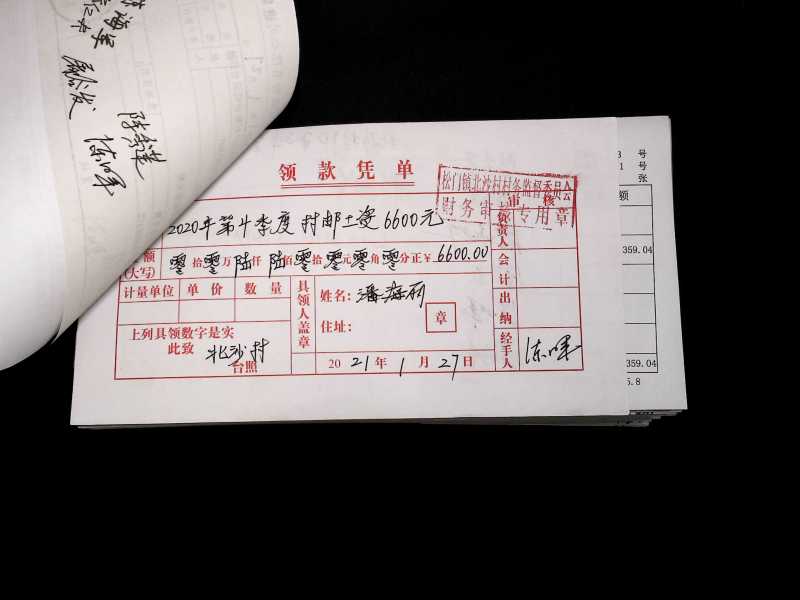 陈
领款凭单
松门镇北沙村村务监督委员会
财务审核专用章
审核
2020年第4季度 村邮土资6600元
负责人
额
(大写)
零拾零万陆仟陆佰零拾零元零角零分正￥6600.00
计量单位 单价 数量
具领人盖章
姓名:潘海丽
住址:
章
会计
出纳
经手人
上列具领数字是实
此致 北沙村
台照
2021年1月27日
号
号
张
额
359.04
359.04
5.8